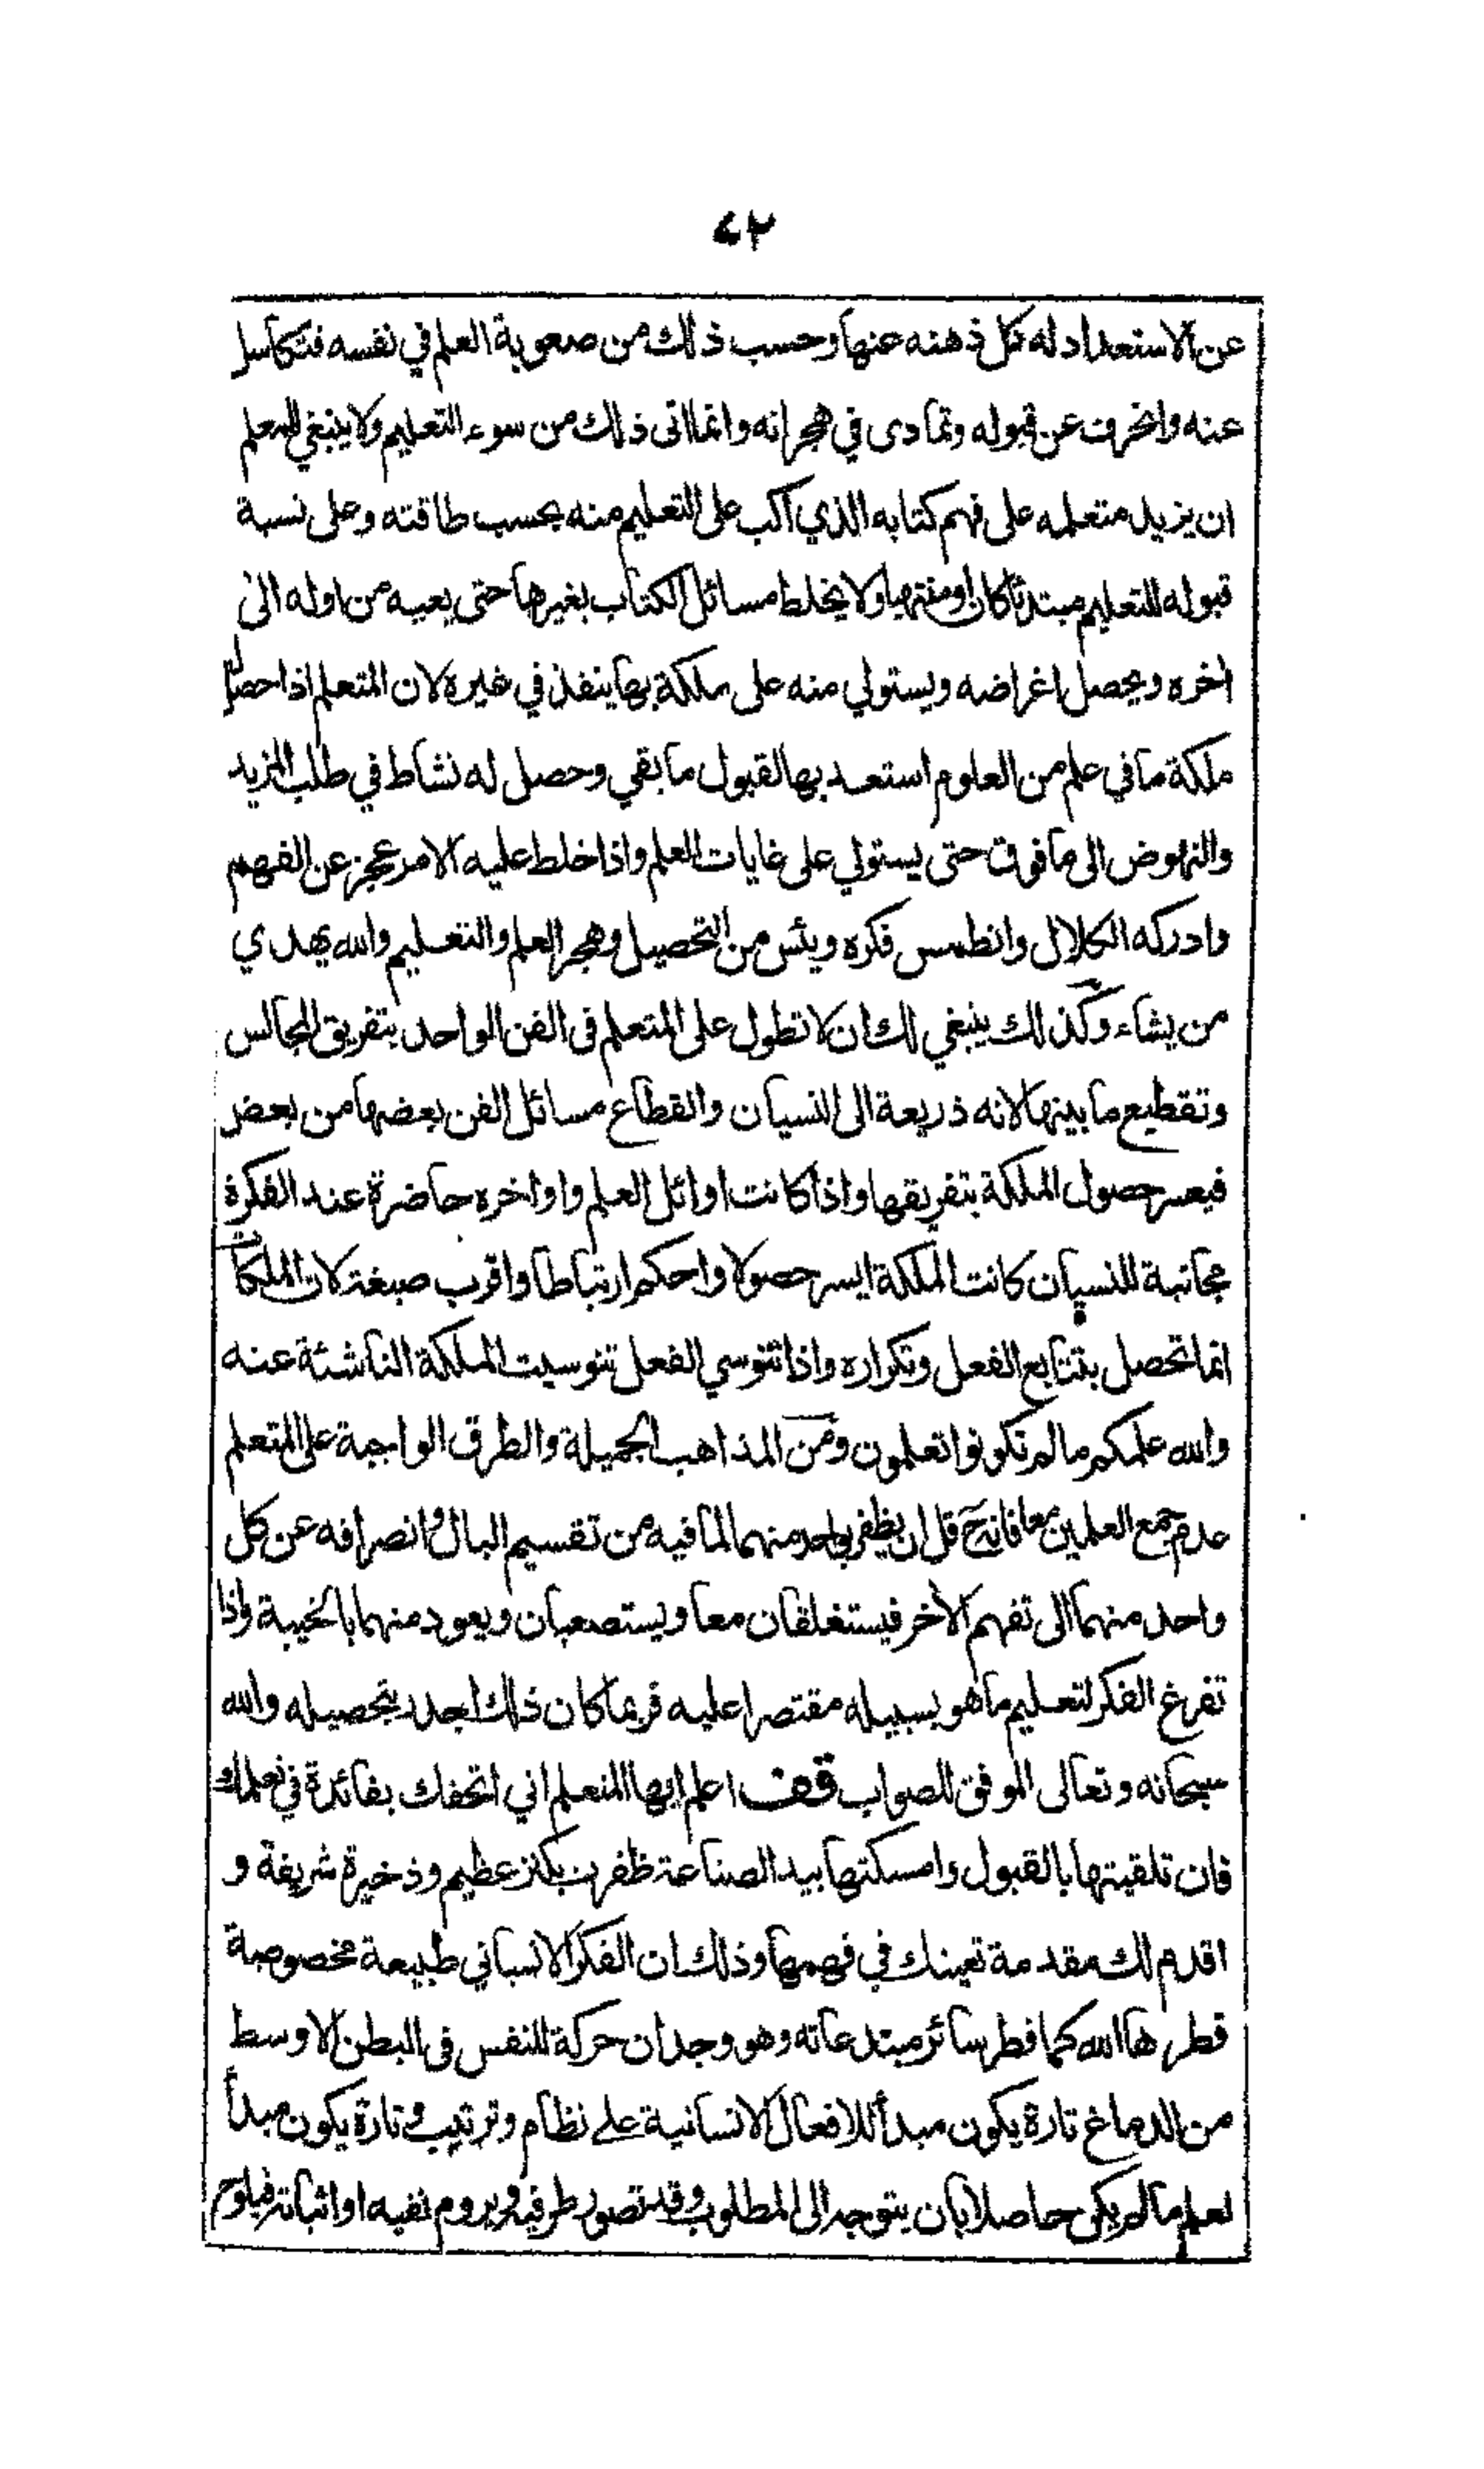 ٤٢
عن الاستعداد له كل ذهنه عنها وحسب ذلك من صعوبة العلم في نفسه فتكاسل
عنه وانحرف عن قبوله وتمادى في هجرانه وانما اتى ذلك من سوء التعليم ولا ينبغي للمعلم
ان يزيد متعلمه على فهم كتابه الذي اكب على التعليم منه بحسب طاقته وعلى نسبة
قبوله للتعليم مبتدئا كان او منتهيا ولا يخلط مسائل الكتاب بغيرها حتى يعيه من اوله الى
اخره ويحصل اغراضه ويستولي منه على ملكة بها ينفذ في غيره لان المتعلم اذا حصل
ملكة ما في علم من العلوم استعد بها لقبول ما بقي وحصل له نشاط في طلب المزيد
والنهوض الى ما فوق حتى يستولي على غايات العلم واذا خلط عليه الامر عجز عن الفهم
وادركه الكلال وانطمس فكره ويئس من التحصيل وهجر العلم والتعليم والله يهدي
من يشاء وكذلك ينبغي لك ان لا تطول على المتعلم فى الفن الواحد بتفريق المجالس
وتقطيع ما بينها لانه ذريعة الى النسيان وانقطاع مسائل الفن بعضها من بعض
فيعسر حصول الملكة بتفريقها واذا كانت اوائل العلم واواخره حاضرة عند الفكرة
مجانبة للنسيان كانت الملكة ايسر حصولا واحكم ارتباطا واقرب صبغة لان الملكات
انما تحصل بتتابع الفعل وتكراره واذا تنوسي الفعل تنوسيت الملكة الناشئة عنه
والله علمكم ما لم تكونوا تعلمون ومن المذاهب الجميلة والطرق الواجبة على المتعلم
عدم جمع العلمين معا فانه ح قل ان يظفر بواحد منهما لما فيه من تقسيم البال وانصرافه عن كل
واحد منهما الى تفهم الآخر فيستغلقان معا ويستصعبان ويعود منهما بالخيبة واذا
تفرغ الفكر لتعليم ما هو بسبيله مقتصرا عليه فربما كان ذلك اجدر بتحصيله والله
سبحانه وتعالى الموفق للصواب قف اعلم ايها المتعلم اني اتحفك بفائدة في تعلمك
فان تلقيتها بالقبول وامسكتها بيد الصناعة ظفرت بكنز عظيم وذخيرة شريفة و
اقدم لك مقدمة تعينك في فهمها وذلك ان الفكر الانساني طبيعة مخصوصة
فطرها الله كما فطر سائر مبتدعاته وهو وجدان حركة للنفس فى البطن الاوسط
من الدماغ تارة يكون مبدأ للافعال الانسانية على نظام وترتيب وتارة يكون مبدأ
لعلم ما لم يكن حاصلا بان يتوجه الى المطلوب وقد تصور طرفيه ويروم نفيه او اثباته فيلوح